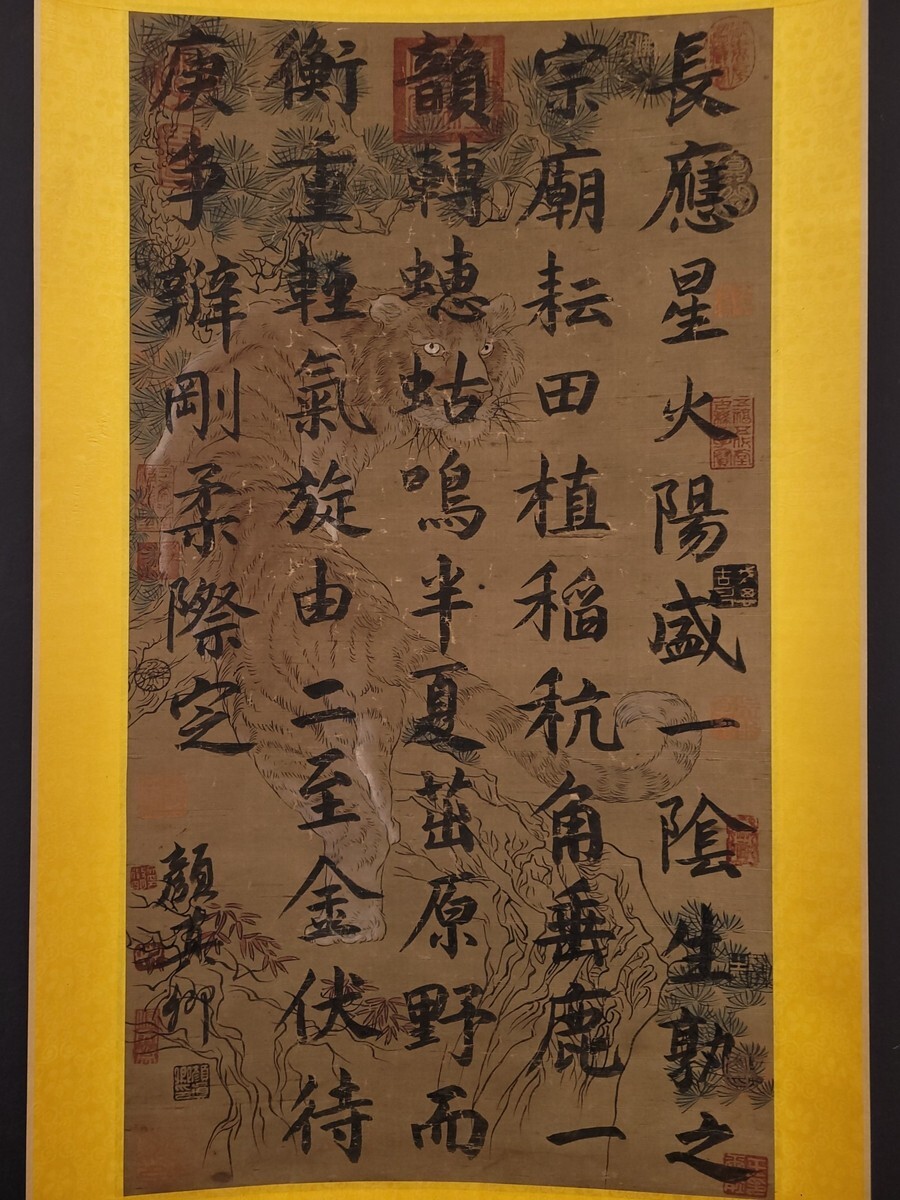 長應星火陽盛一陰生孰之
宗廟耘田植稻秔角垂鹿一
韻轉蟪蛄鳴半夏茁原野而
衡重輊氣旋由二至金伏待
庚争辦剛柔際定
顏真卿